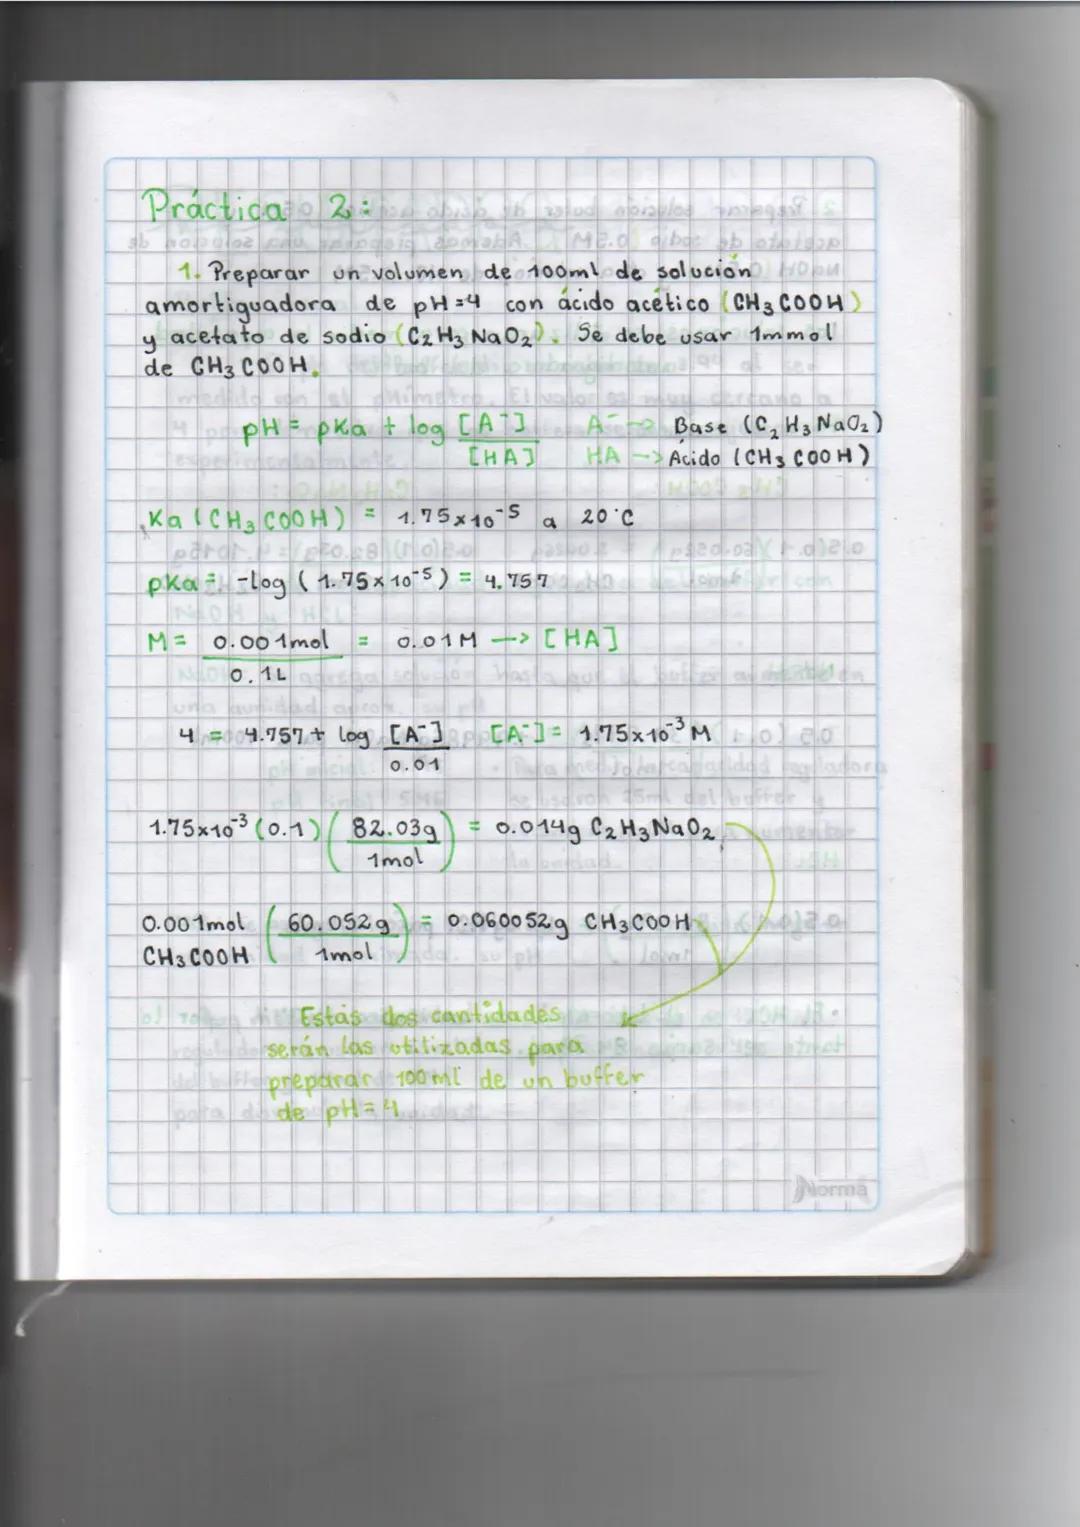 Práctica 2:
1. Preparar un volumen de 100ml de solución
amortiguadora de pH=4 con ácido acético (CH3COOH)
y acetato de sodio (C2H3NaO2). Se debe usar 1mmol
de CH3COOH.
pH = pKa + log [A-] / [HA]
A- --> Base (C2H3NaO2)
HA --> Ácido (CH3COOH)
Ka (CH3COOH) = 1.75x10-5 a 20°C
pKa = -log (1.75x10-5) = 4.757
M = 0.001mol / 0.1L = 0.01M --> [HA]
4 = 4.757 + log [A-] / 0.01 [A-] = 1.75x10-3 M
1.75x10-3 (0.1) (82.03g / 1mol) = 0.014g C2H3NaO2
0.001mol CH3COOH (60.052g / 1mol) = 0.060052g CH3COOH
Estas dos cantidades
serán las utilizadas para
preparar 100ml de un buffer
de pH=4
Norma